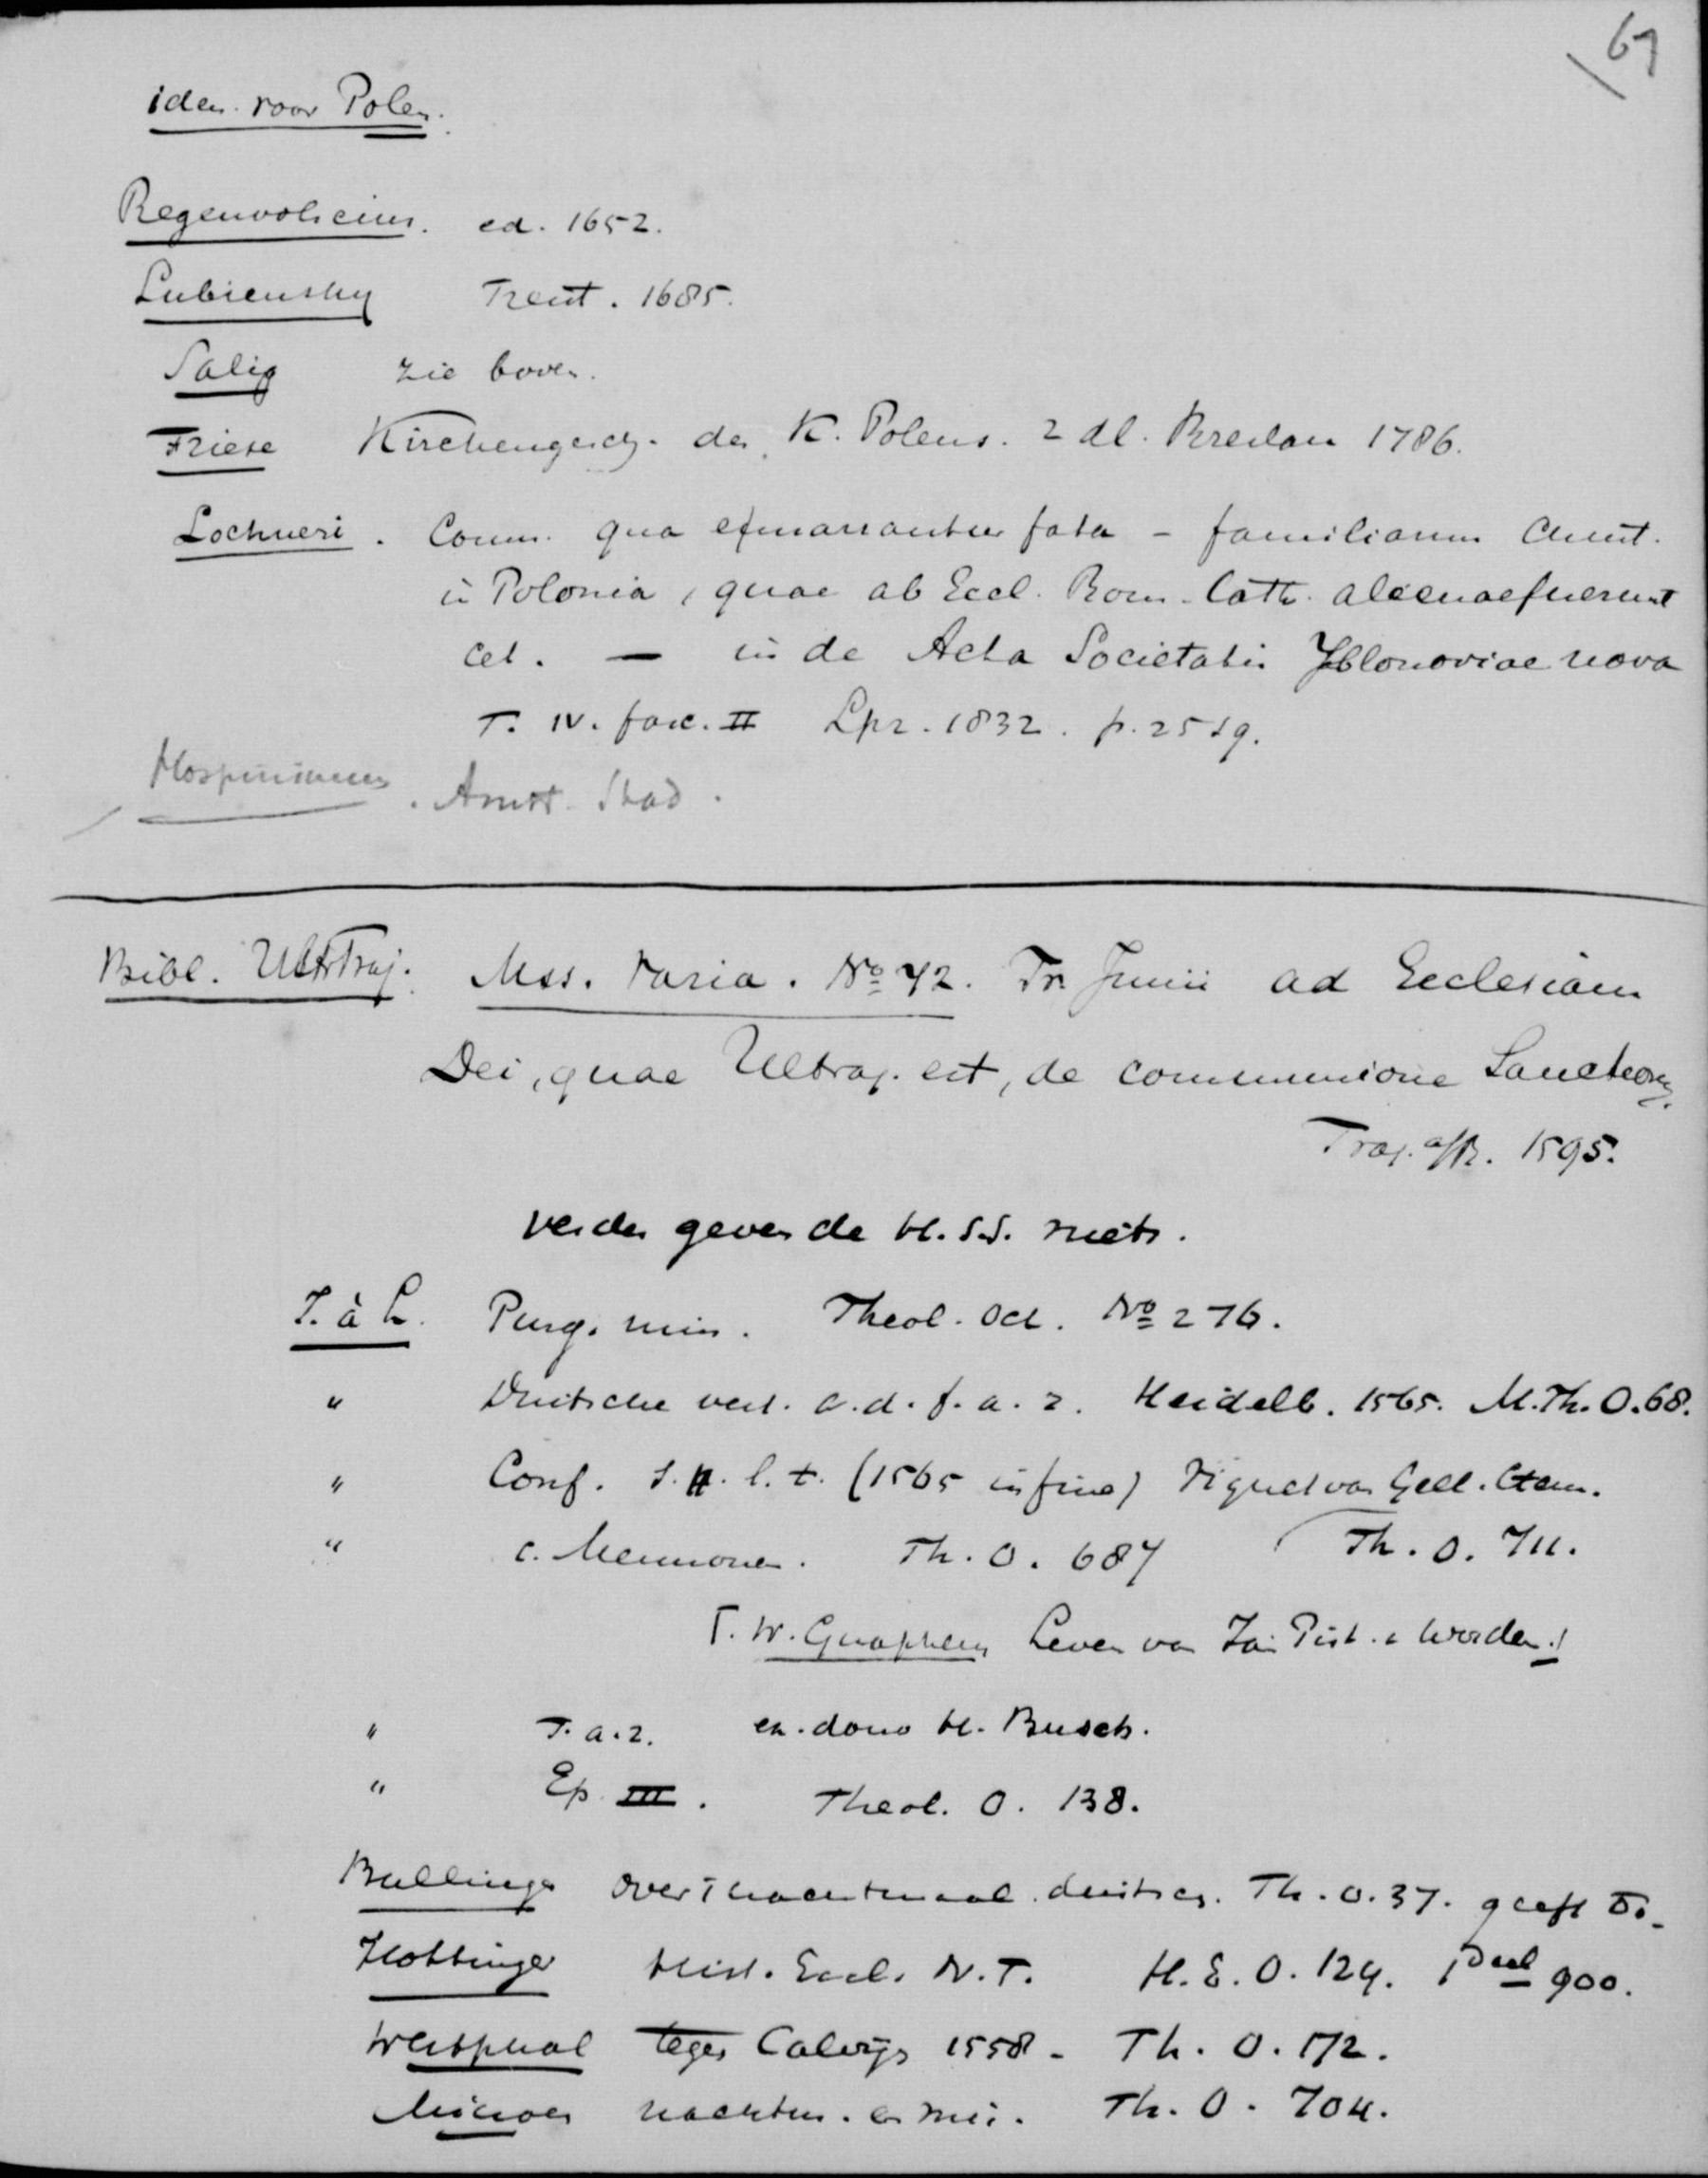 67
idem voor Polen.
Regenvolscius. ed. 1652.
Lubiensky Freist. 1685.
Salig zie boven.
Friese Kirchengesch. des K. Polens. 2 dl. Breslau 1786.
Lochneri. Comm. qua enarrantur fata – familiarum Christ.
in Polonia, quae ab Eccl. Rom. Cath. alienae fuerunt
cet. — in de Acta Societatis Jablonoviae nova
T. IV. fasc. II Lpz. 1832. p. 25 sq.
Hospinianus. Amst. Stad.
Bibl. Ultraj. Mss. varia. No 42. Fr. Junii ad Ecclesiam
Dei, quae Ultraj. est, de communione Sanctorum.
Traj. a/R. 1595.
verder geven de H.S.S. niets.
J. à L. Purg. min. Theol. Oct. No 276.
" Duitsche vert. v. d. f. a. 2. Heidelb. 1565. M. Th. O. 68.
" Conf. s. l. t. (1565 in fine) Vignet van Gell. Ctem.
" c. Mennonem. Th. O. 687 Th. O. 711.
W. Gnapheus Leven van Jan Pist. v. Woerden!
" F. a. 2. ex. dono H. Busch.
" Ep. III. Theol. O. 138.
Bullinger over 't nachtmaal. duitsch. Th. O. 37. geeft
Hottinger Hist. Eccl. N. T. H. E. O. 124. Deel 900.
Westphal tegen Calvijn 1558 – Th. O. 172.
Micron nachtm. en mis. Th. O. 704.